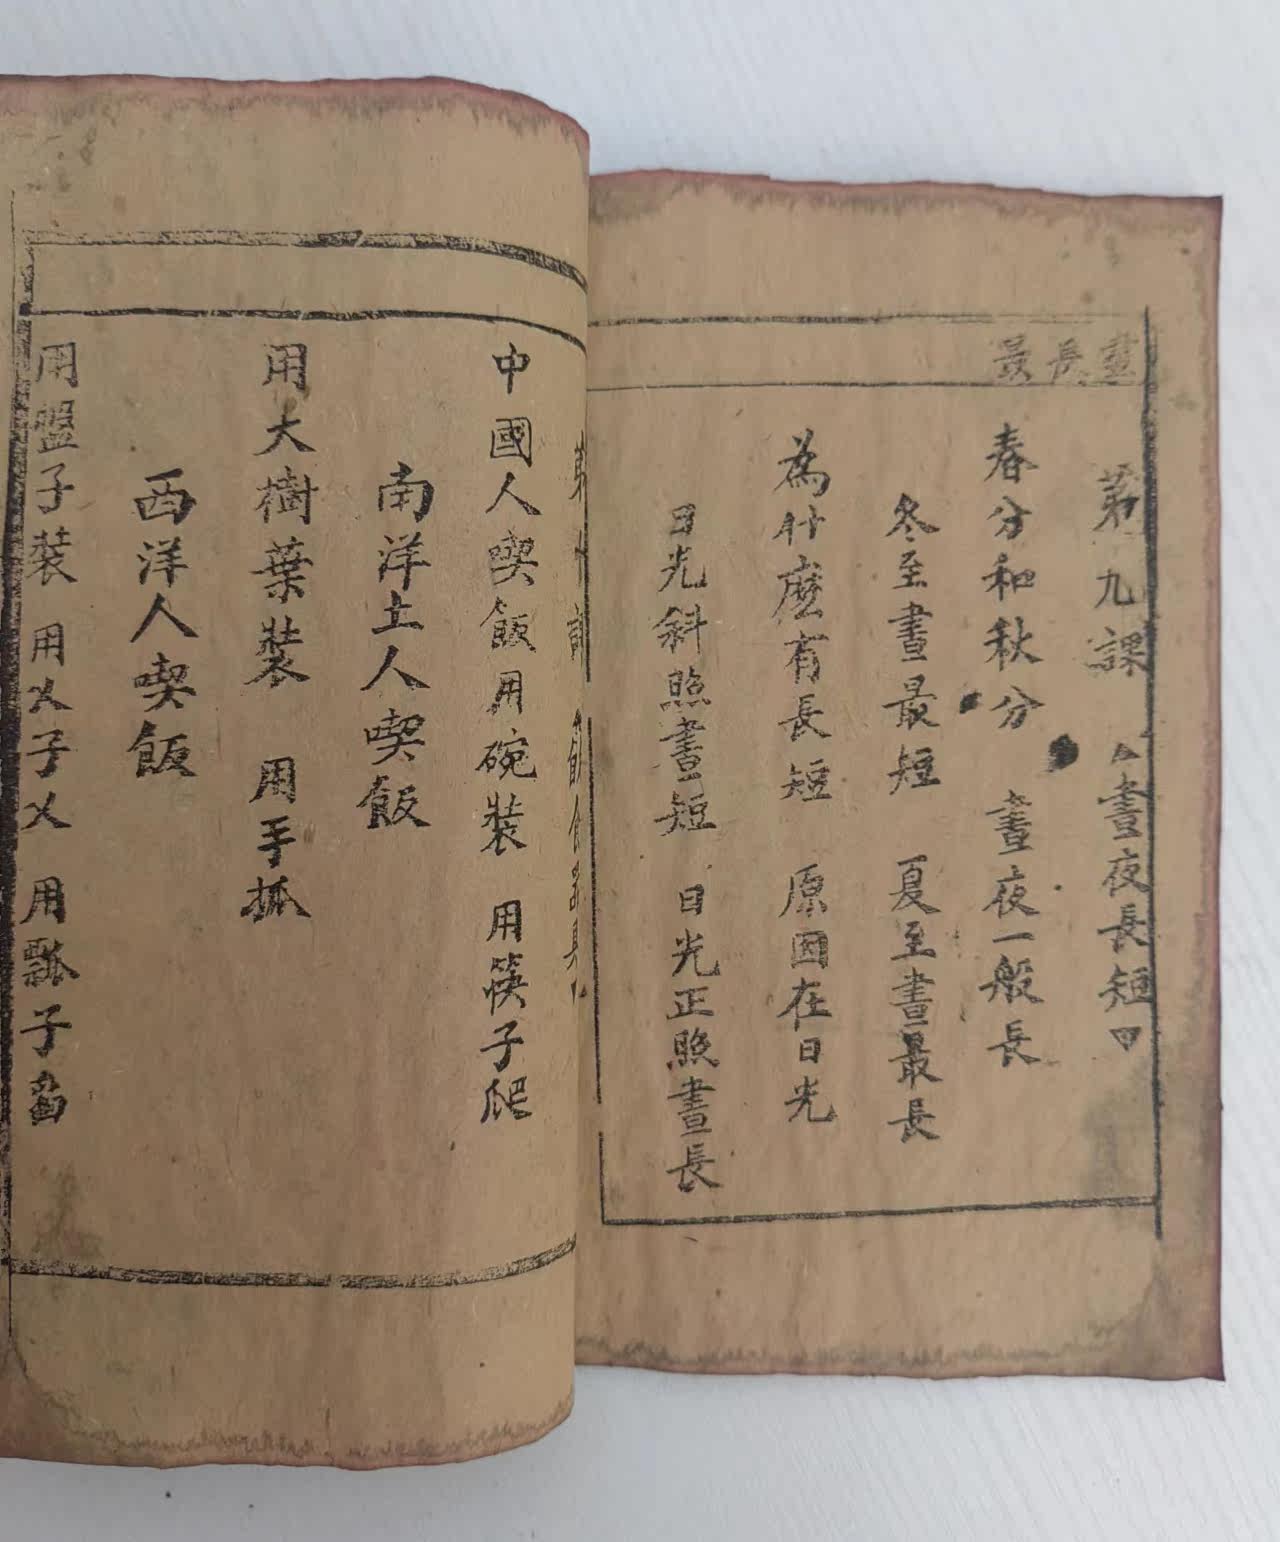 晝長最
第九課 晝夜長短
春分和秋分 晝夜一般長
冬至晝最短 夏至晝最長
為什麽有長短 原因在日光
日光斜照晝短 日光正照晝長
第十課 飲食器具
中國人喫飯用碗裝 用筷子爬
南洋土人喫飯
用大樹葉裝 用手抓
西洋人喫飯
用盤子裝 用乂子乂 用瓢子舀